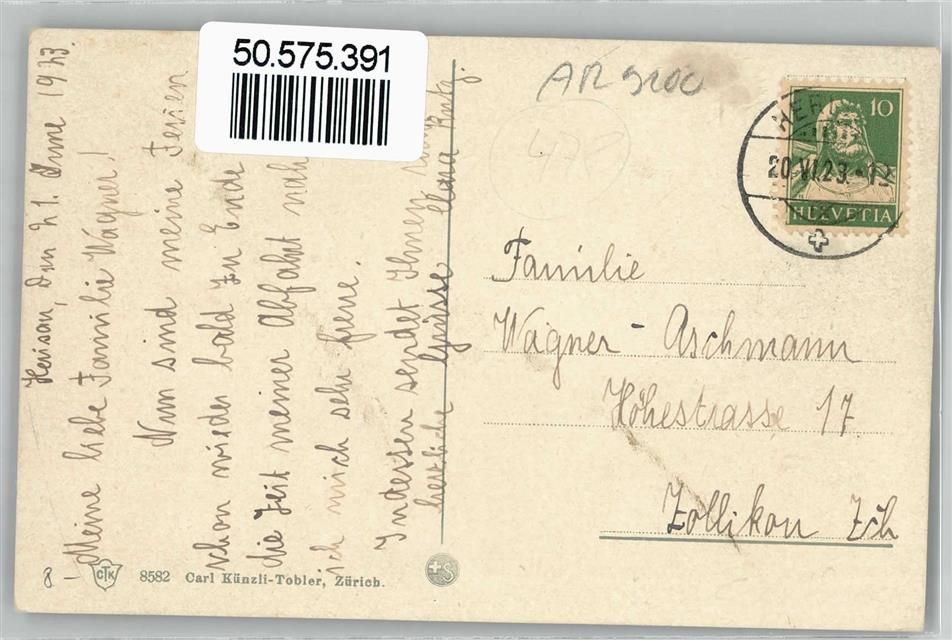 50.575.391
AR 9100
478
Herisau, den 21. June 1923.
Meine liebe Familie Wagner!
Nun sind meine Ferien
schon wieder bald zu Ende
die Zeit meiner Abfahrt nah
ich mich sehr freue.
Indessen sendet Ihnen
herzliche Grüsse Clara
10
HELVETIA
20.VI.23.-12
Familie
Wagner-Aschmann
Höhestrasse 17
Zollikon Zch
8 -
CTK 8582 Carl Künzli-Tobler, Zürich.